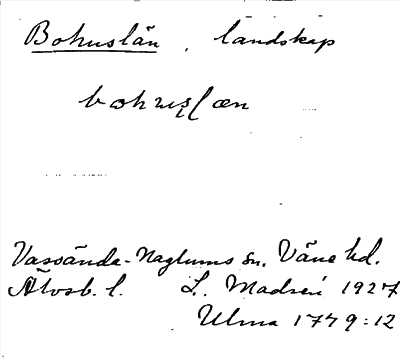 Bohuslän, landskap
Vassända-Naglums sn. Väne hd.
Älvsb. l. L. Madsén 1927
Ulma 1779:12